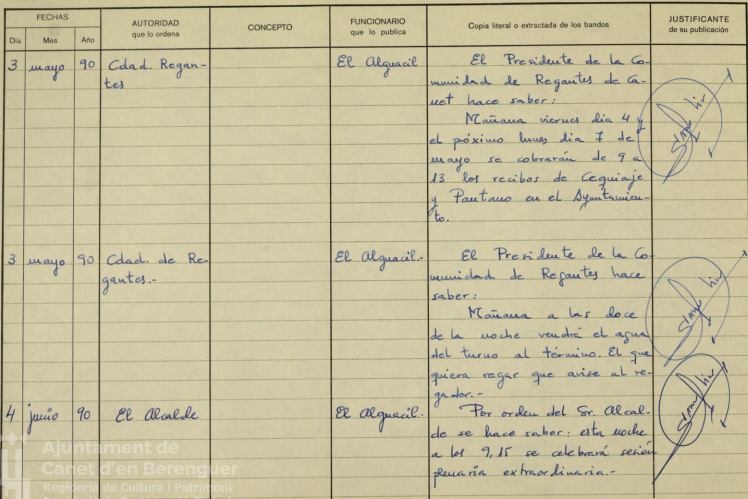 FECHAS
Día Mes Año
AUTORIDAD
que lo ordena
CONCEPTO
FUNCIONARIO
que lo publica
Copia literal o extractada de los bandos
JUSTIFICANTE
de su publicación
3 mayo 90 Cdad. Regan-
tes
El Alguacil
El Presidente de la Co-
munidad de Regantes de Ca-
net hace saber:
Mañana viernes dia 4 y
el póximo lunes dia 7 de
mayo se cobrarán de 9 a
13 los recibos de Cequiaje
y Pantano en el Ayuntamien-
to.
3 mayo 90 Cdad. de Re-
gantes.-
El Alguacil.-
El Presidente de la Co-
munidad de Regantes hace
saber:
Mañana a las doce
de la noche vendrá el agua
del turno al término. El que
quiera regar que avise al re-
gador.-
4 junio 90 El Alcalde
El Alguacil.-
Por orden del Sr. Alcal-
de se hace saber: esta noche
a las 9,15 se celebrará sesión
plenaria extraordinaria.-
Ajuntament de
Canet d'en Berenguer
Regidoria de Cultura i Patrimoni